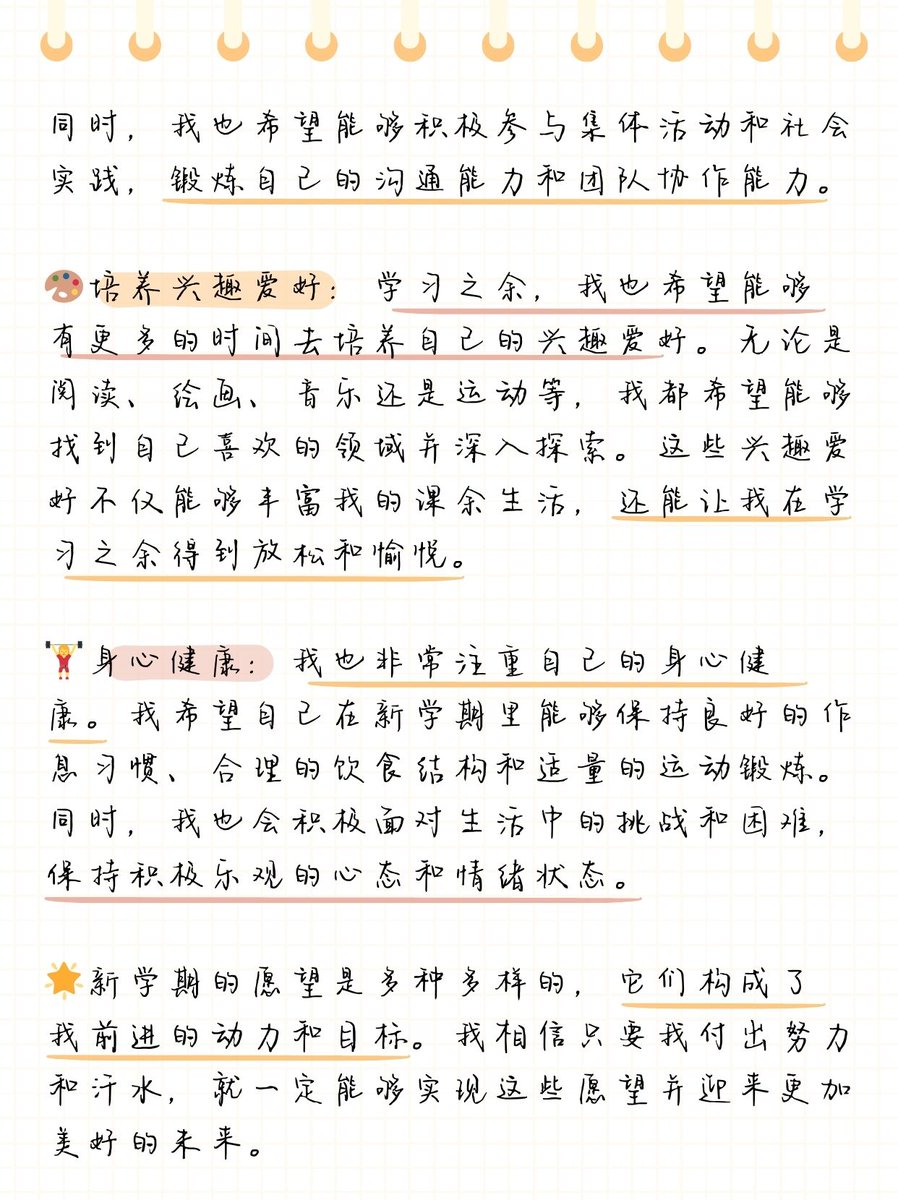 同时，我也希望能够积极参与集体活动和社会
实践，锻炼自己的沟通能力和团队协作能力。
培养兴趣爱好：学习之余，我也希望能够
有更多的时间去培养自己的兴趣爱好。无论是
阅读、绘画、音乐还是运动等，我都希望能够
找到自己喜欢的领域并深入探索。这些兴趣爱
好不仅能够丰富我的课余生活，还能让我在学
习之余得到放松和愉悦。
身心健康：我也非常注重自己的身心健
康。我希望自己在新学期里能够保持良好的作
息习惯、合理的饮食结构和适量的运动锻炼。
同时，我也会积极面对生活中的挑战和困难，
保持积极乐观的心态和情绪状态。
新学期的愿望是多种多样的，它们构成了
我前进的动力和目标。我相信只要我付出努力
和汗水，就一定能够实现这些愿望并迎来更加
美好的未来。